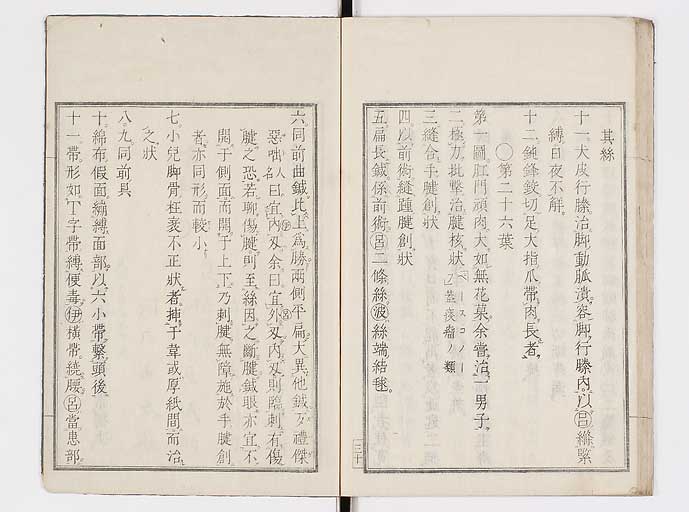 其絲
十一犬皮行縢治脚動脈潰容脚行縢内以㊁縧緊
縛日夜不解
十二鈍鋒鉸切足大指爪帶肉長者
〇第二十六葉
第一圖肛門頑肉大如無花菓余嘗治一男子
二極刀批撃治腱核状
三縫合手腱創状
四以前術縫踵腱創状
五扁長鍼係前術㊂二條絲波絲端結毬
三十
六同前曲鍼比上為勝兩側平扁大異他鍼歹禮傑
惡咄人名曰宜内刄余曰宜外刄内刄則臨刺有傷
腱之恐若聊傷腱則至絲因之斷腱鍼眼亦宜不
開于側面而開于上下乃刺腱無障施於手腱創
者亦同形而較小
七小兒脚骨枉衺不正状者挿于韋或厚紙間而治
之状
八九同前具
十綿布假面繃縛面部以六小帶繋頭後
十一帶形如丁字帶縛便毒伊横帶繞腰呂當患部